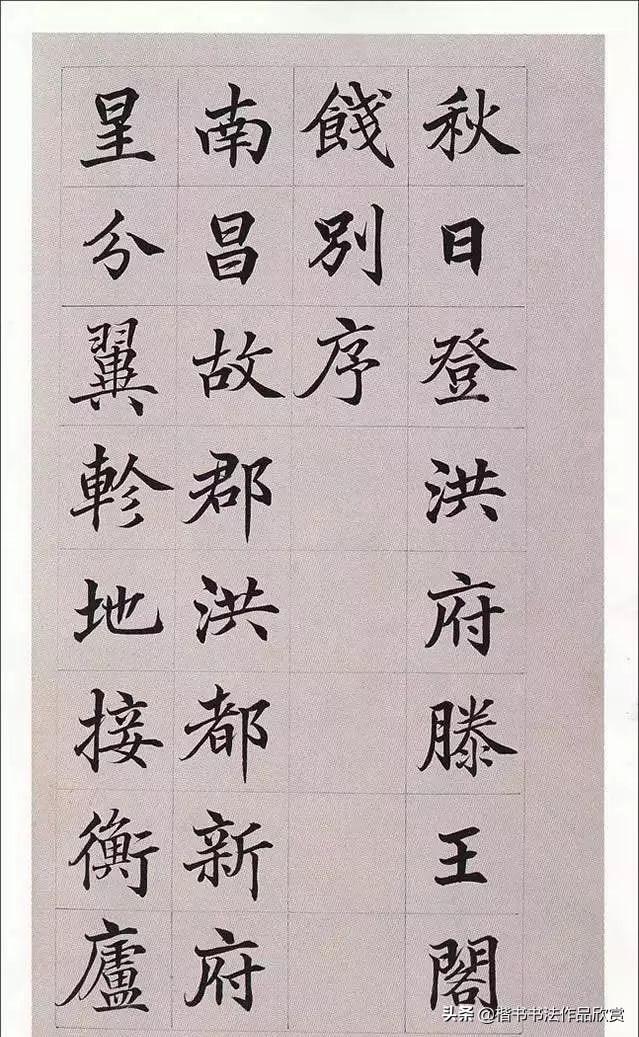 秋日登洪府滕王閣
餞別序
南昌故郡洪都新府
星分翼軫地接衡廬
头条 @楷书书法作品欣赏